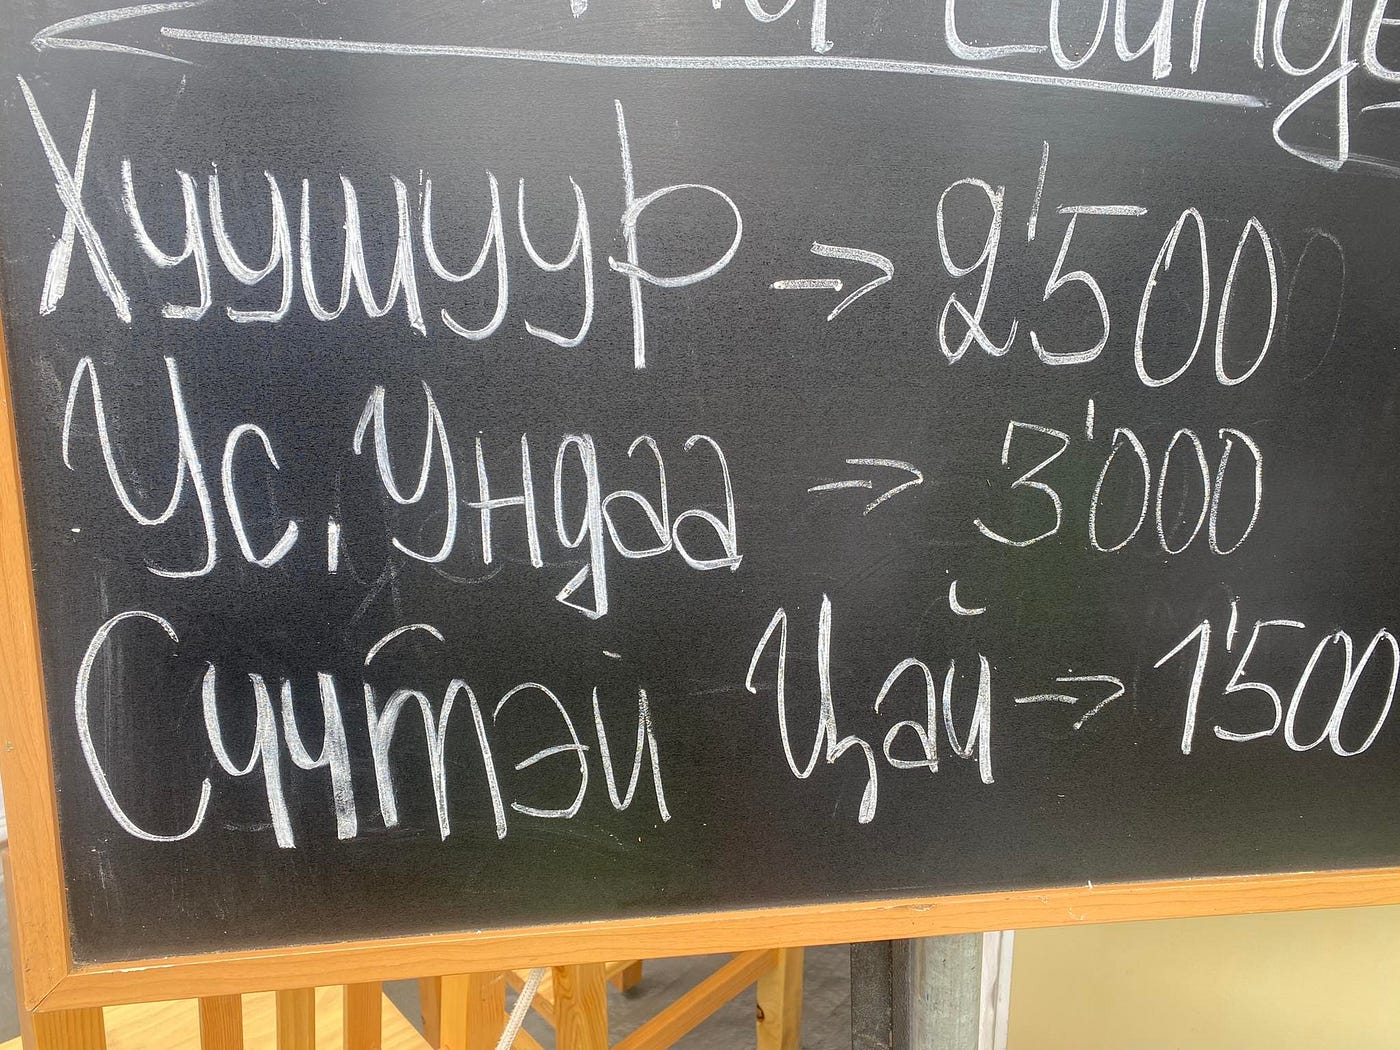 Lounge
Хуушуур → 2'500
Ус, Ундаа → 3'000
Сүүтэй Цай → 1'500